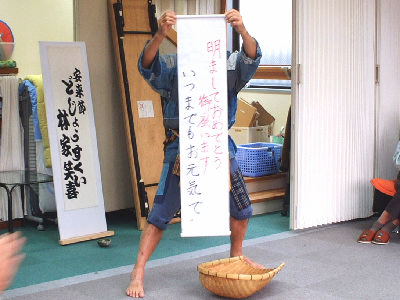 明ましておめでとう
御座います
いつまでもお元気で.
安来節
どじょうすくい
林家笑喜